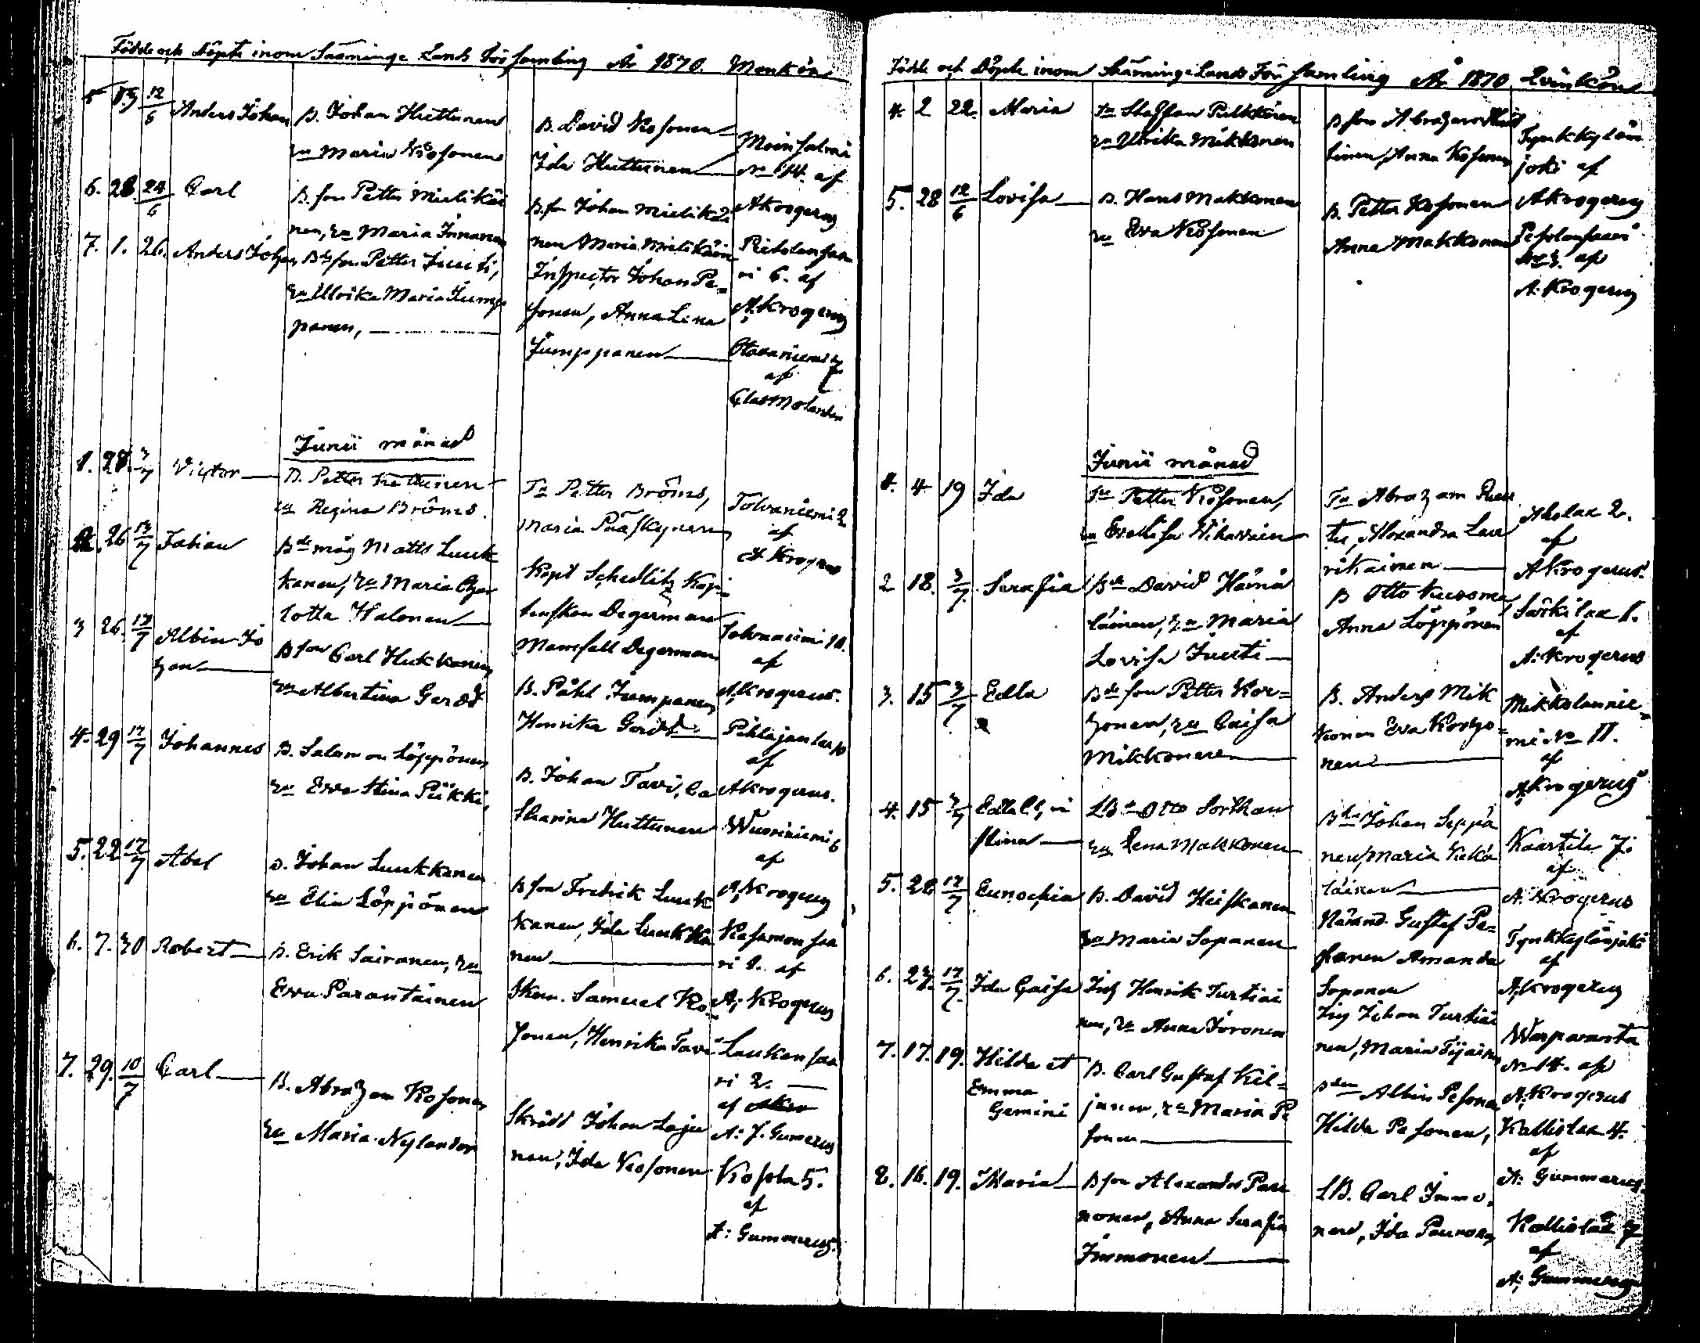 Födde och döpte inom Sääminge Lands Församling År 1870. Mankön
5 13 12/6 Anders Johan B. Johan Huttunen
va Maria Kosonen
B. David Kosonen
Ida Huttunen
Moinsalmi
No 14. af
A Krogerus
6. 28. 24/6 Carl B. son Petter Mielikäi
nen, va Maria Innanen
B. sn Johan Mielikäi
nen Maria Mielikäin
Pietolansaa
ri 6. af
A. Krogerus
7. 1. 26. Anders Johan Bde son Petter Juuti,
va Ulrika Maria Jump
panen,
Inspector Johan Pe=
sonen, Anna Lena
Jumppanen
af
Clas Molander
Junii månad
1. 28. 3/7 Victor B. Petter Kettunen
va Regina Bröms.
Petter Bröms,
Maria Pääskynen
Tolvaniemi 2
af
A Krogerus
2. 26 17/7 Fabian Bde måg Matts Luuk
kanen, va Maria Char
lotta Halonen
Kapt Schedlitz Kap
Degerman
Mamsell Degerman
Tolvaniemi 10.
af
A. Krogerus.
3 26. 17/7 Albin Jo
han
B son Carl Hukkanen
va Albertina Gerdd
B. Påhl Jumpanen
Henrika Gerdd
Pihlajaniemi
af
A Krogerus.
4. 29 17/7 Johannes B. Salamon Löppönen
va Eva Stina Piikki,
B. Johan Tavi, Ca
tharina Huttunen
Wuoriniemi 6
af
A. Krogerus
5. 22 17/7 Abel B. Johan Luukkanen
va Elin Löppönen
B son Fredrik Luuk
kanen, Ida Luukka
nen
Kosamonsaa
ri 2. af
A; Krogerus
6. 7. 30 Robert B. Erik Sairanen, va
Eva Parantainen
Sken. Samuel Ko
sonen, Henrika Tavi
Laukansaa
ri 2.
af
A: J. Gumerus
7. 29. 10/7 Carl B. Abraham Kosonen
va Maria Nylander
Skrädd Johan Laju
nen, Ida Kosonen
Kosola 5.
af
A: Gummerus.
Födde och Döpte inom Sääminge Lands Församling År 1870 Qvinkön
4. 2 22. Maria Staffan Pulkkinen
va Ulrika Mikkonen
B son Abraham Hut
tunen, Anna Kosonen
Tynkkylän
joki af
A Krogerus
5. 28 12/6 Lovisa B. Hans Makkonen
va Eva Kosonen
B. Petter Kosonen
Anna Makkonen
No 3. af
A. Krogerus
Junii månad
1. 4 19 Ida Petter Kosonen,
va Eva Lisa Wihavainen
Abraham Juu
ti, Alexandra Lau
rikainen
Aholax 2.
af
A Krogerus.
2 18. 3/7. Serafia Bde David Hämä
läinen, va Maria
Lovisa Juuti
B Otto Kuosma
Anna Löppönen
Särkilax 1.
af
A. Krogerus
3. 15 3/7 Edla Bde son Petter Kor=
honen, va Caisa
Mikkonen
B. Anders Mik
konen Eva Korho=
nen
Mikkolannie=
mi No 11.
af
A Krogerus
4. 15 3/7 Edla Chri
stina
Otto Sorthan
va Lena Makkonen
Johan Seppä
nen, Maria Kekä
läinen
Kaartila 7.
af
A. Krogerus
5. 28 17/7 Eunochia B. David Heiskanen
va Maria Soponen
Nämnd. Gustaf Pe=
sonen Amanda
Soponen
Tynkkylänjoki
af
A. Krogerus
6. 27. 17/7. Ida Caisa Inh Henrik Turtiai
nen, va Anna Toronen
Inh Johan Turtiai
nen, Maria
Warparanta
No 14. af
A; Krogerus
7. 17. 19. Hilda et
Emma
Gemini
B. Carl Gustaf Kil=
junen, va Maria Pe
sonen
Albin Pesonen
Hilda Pesonen,
Kallislax 4.
af
A: Gummerus.
8. 16. 19. Maria B son Alexander Pau
nonen, Anna Serafia
Immonen
LB. Carl Immo.
nen, Ida Paunonen
Kallislax 7
af
A; Gummerus